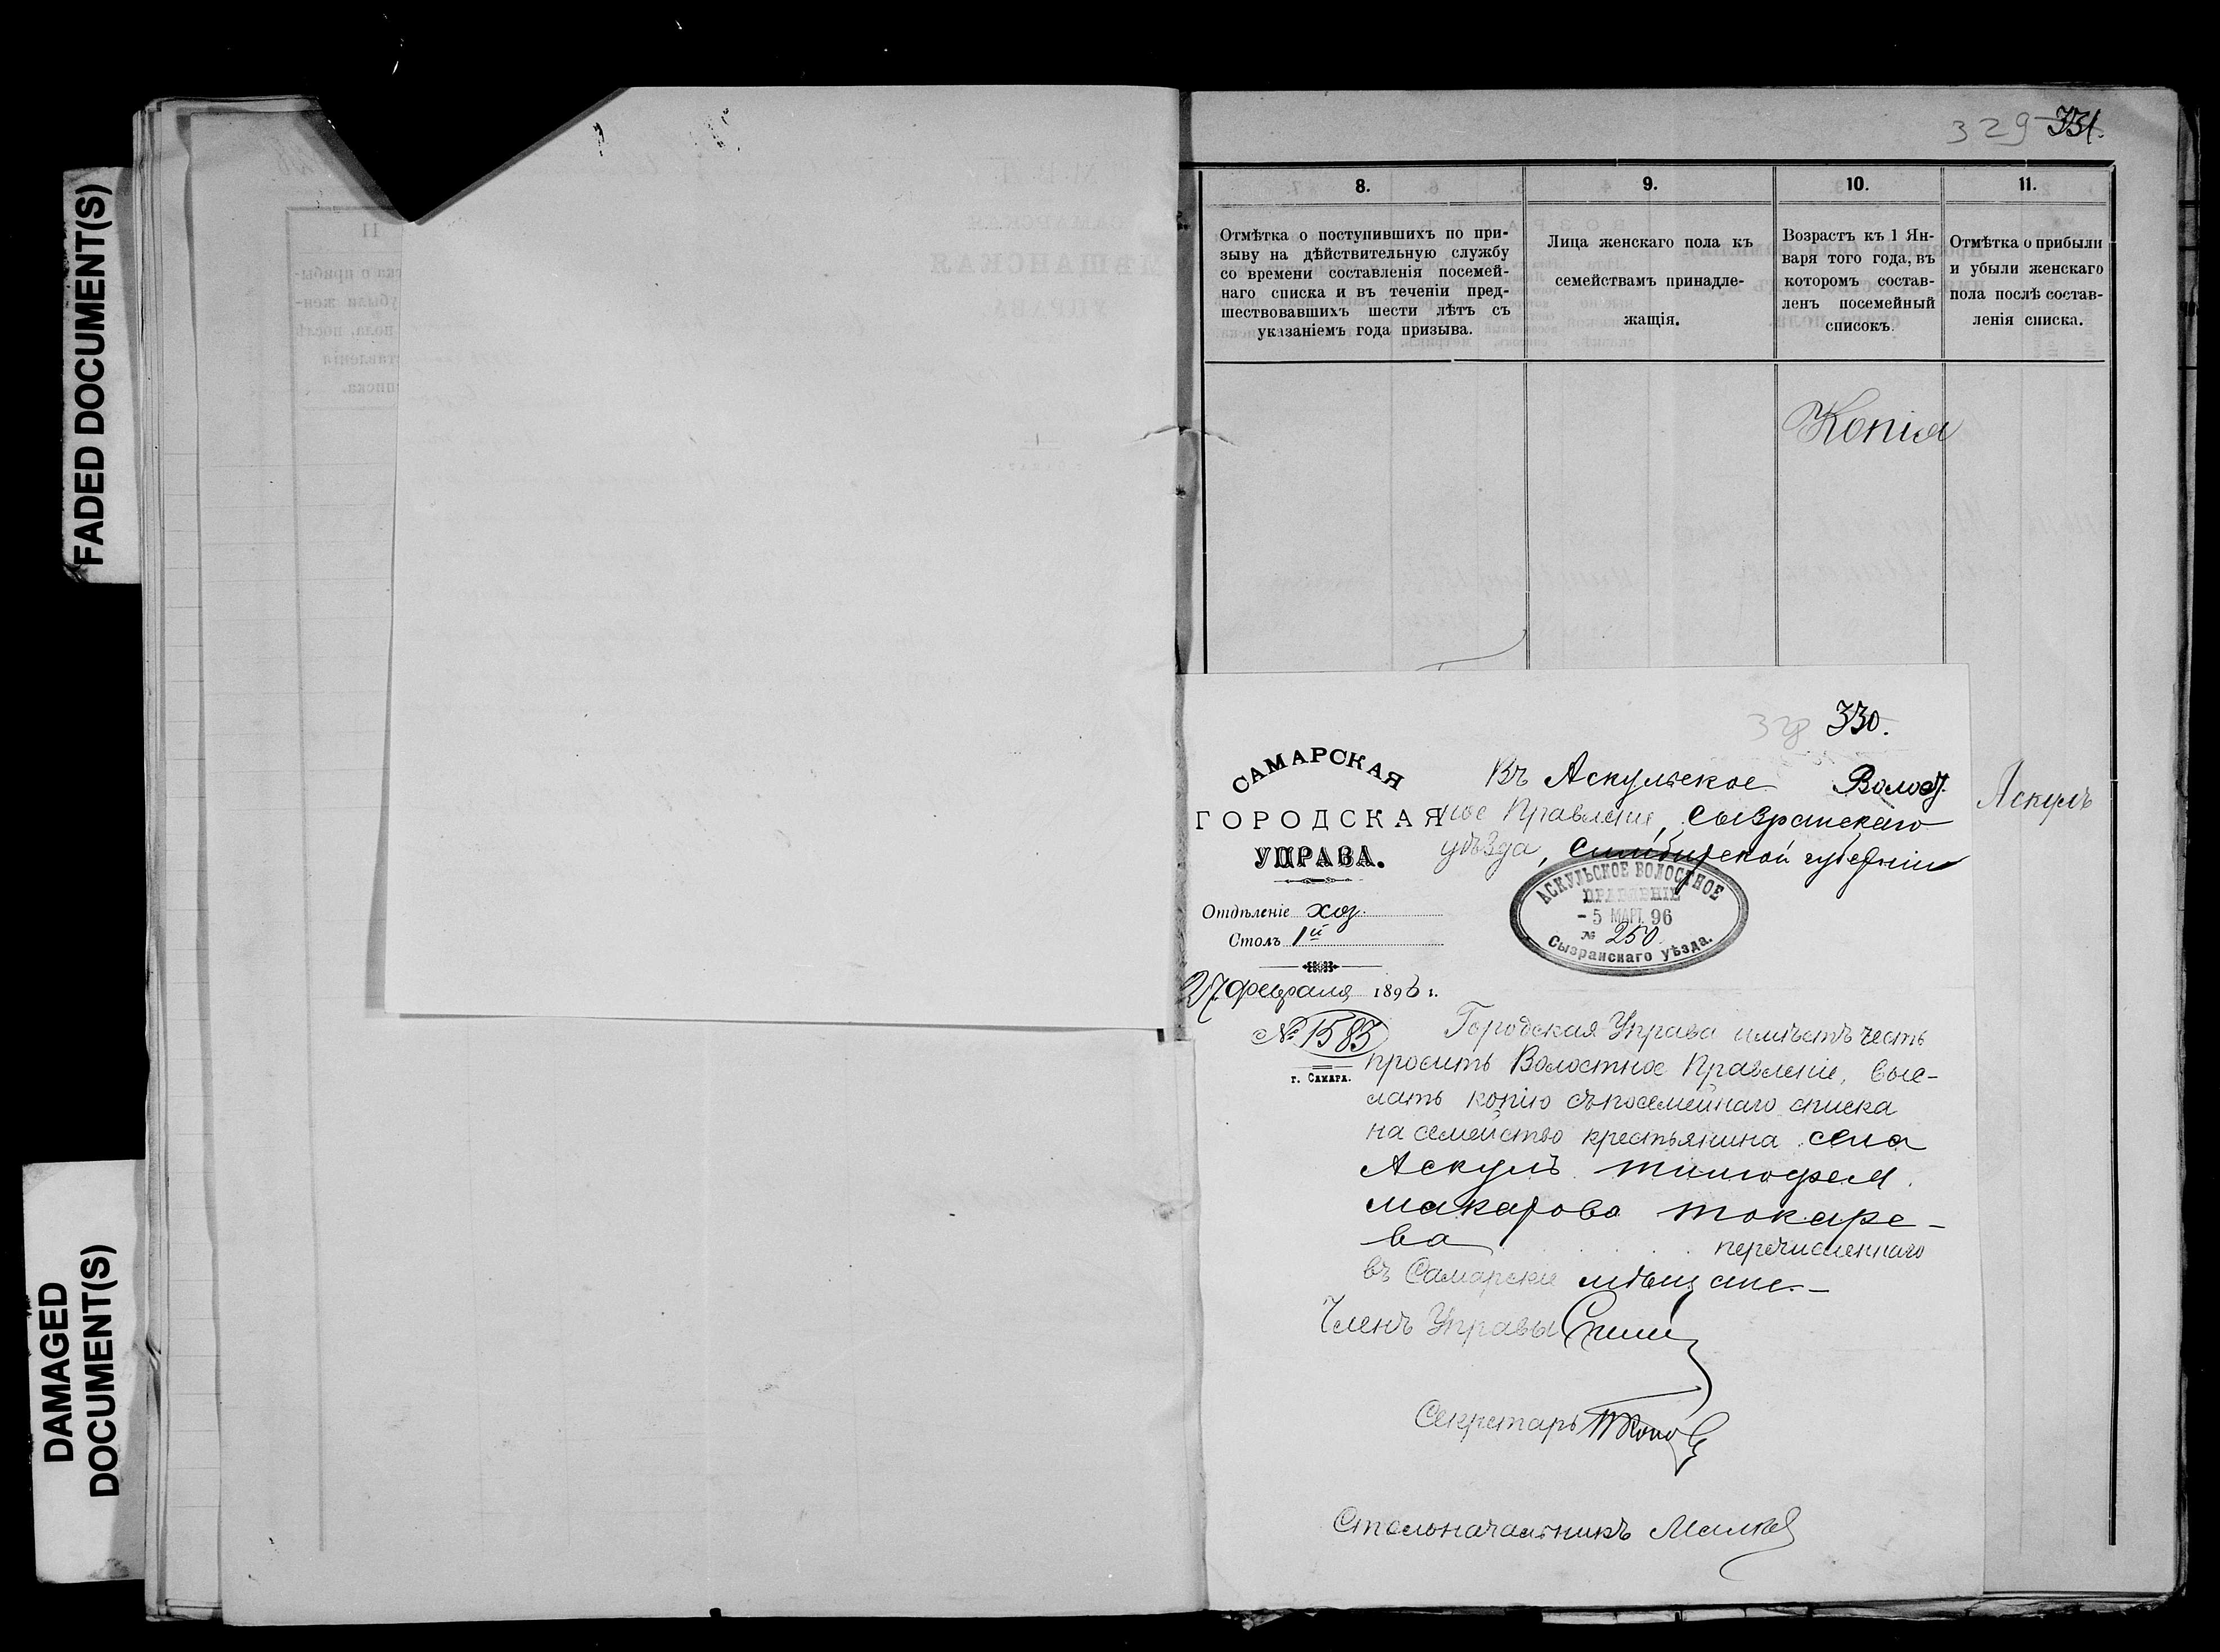 FADED DOCUMENT(S)
DAMAGED
DOCUMENT(S)
329 331.
8.
Отмѣтка о поступившихъ по при-
зыву на дѣйствительную службу
со времени составленія посемей-
наго списка и въ теченіи пред-
шествовавшихъ шести лѣтъ съ
указаніемъ года призыва.
9.
Лица женскаго пола къ
семействамъ принадле-
жащія.
10.
Возрастъ къ 1 Ян-
варя того года, въ
которомъ состав-
ленъ посемейный
списокъ.
11.
Отмѣтка о прибыли
и убыли женскаго
пола послѣ состав-
ленія списка.
Копія
328 330.
САМАРСКАЯ
ГОРОДСКАЯ
УПРАВА.
Отдѣленіе хоз.
Столъ 1й
27 февраля 1896 г.
№ 1583
г. САМАРА.
Въ Аскульское Волост
ное Правленіе, Сызранскаго
уѣзда, Симбирской губерніи
Аскулъ
АСКУЛЬСКОЕ ВОЛОСТНОЕ
ПРАВЛЕНІЕ
- 5 МАРТ. 96
№ 250
Сызранскаго уѣзда.
Городская Управа имѣетъ честь
просить Волостное Правленіе, выс-
лать копію съ посемейнаго списка
на семейство крестьянина села
Аскулъ Тимофея
Макарова Токаре-
ва перечисленнаго
въ Самарскіе мѣщане.
Членъ Управы
Секретарь
Столоначальникъ